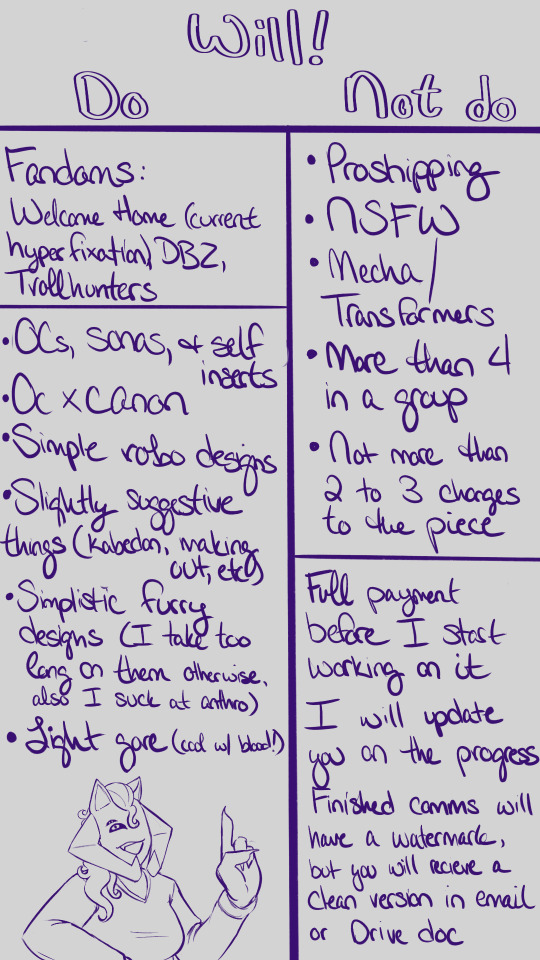 Will!
Do
Fandoms:
Welcome Home (current
hyperfixation), DBZ,
Trollhunters
•OCs, sonas, & self
inserts
•Oc x Canon
•Simple robo designs
•Slightly suggestive
things (kabedon, making
out, etc)
•Simplistic furry
designs (I take too
long on them otherwise,
also I suck at anthro)
• Light gore (cool w/ blood!)
Not do
• Proshipping
• NSFW
• Mecha/
Transformers
• More than 4
in a group
• Not more than
2 to 3 changes
to the piece
Full payment
before I start
working on it
I will update
you on the progress
Finished comms will
have a watermark,
but you will recieve a
clean version in email
or Drive doc